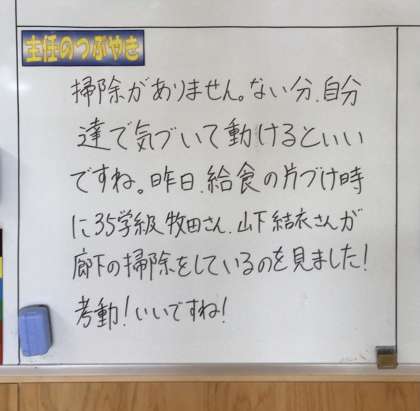 主任のつぶやき
掃除がありません。ない分、自分
達で気づいて動けるといい
ですね。昨日、給食の片づけ時
に35学級 牧田さん、山下 結衣さんが
廊下の掃除をしているのを見ました!
考動!いいですね!